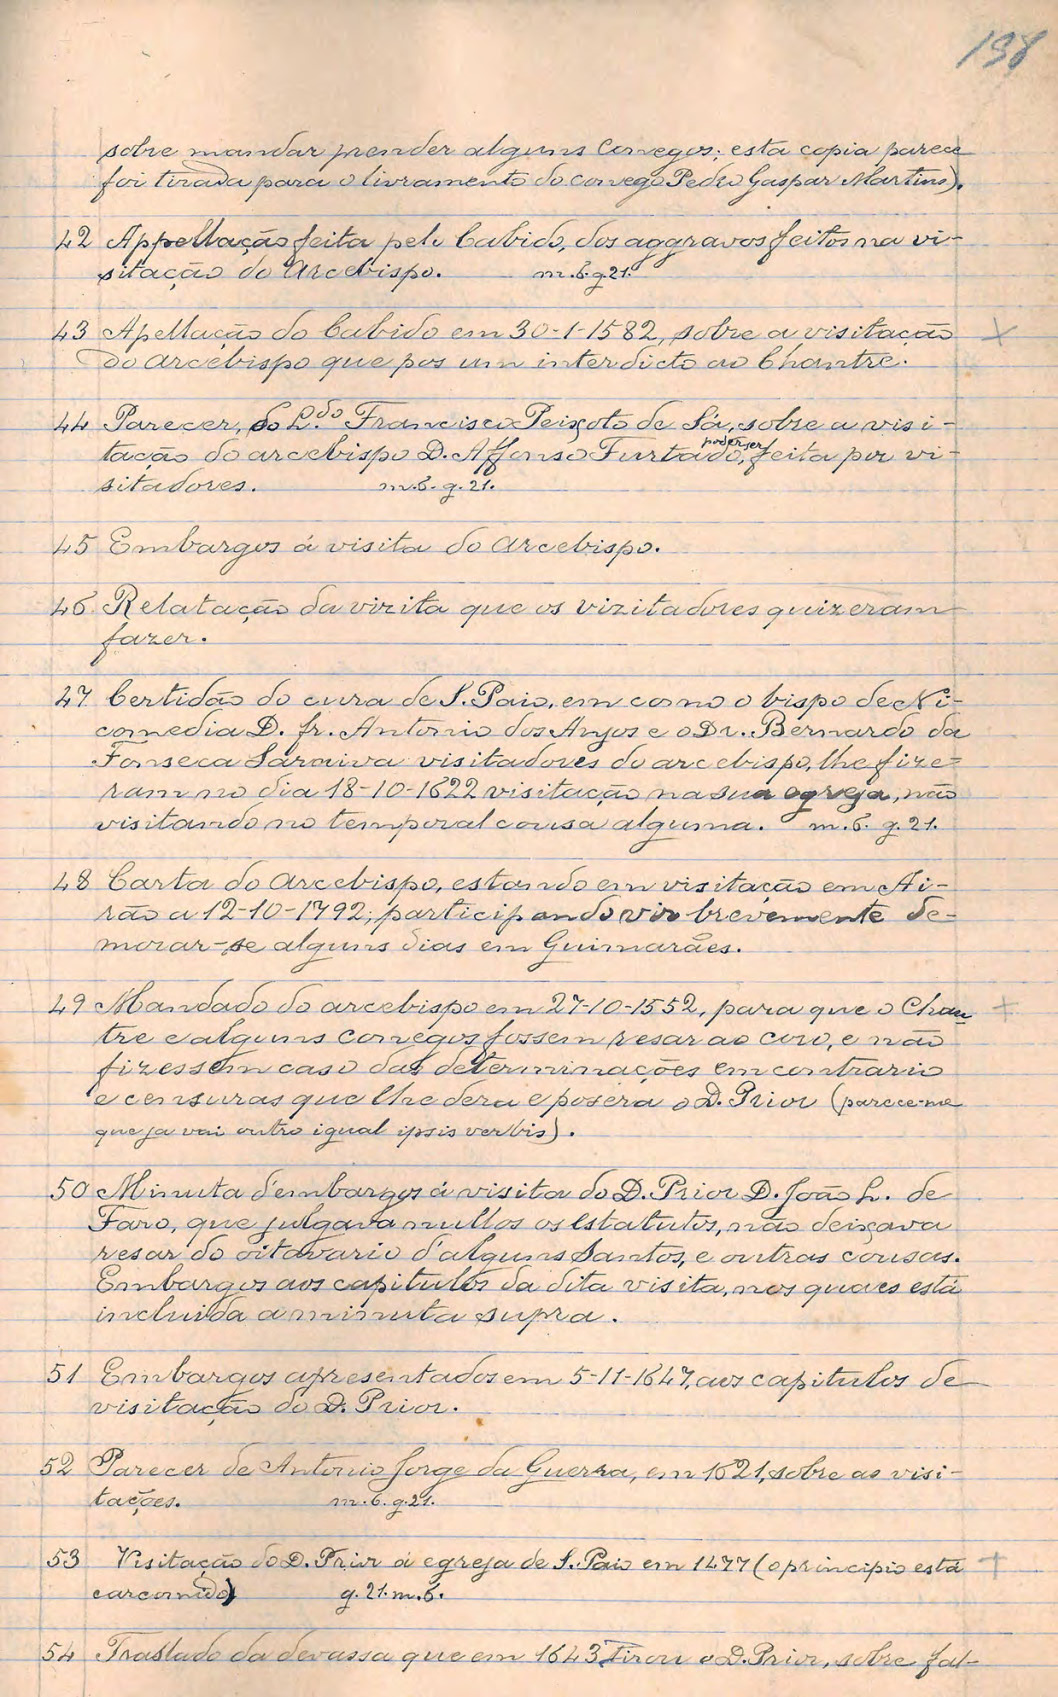 198
sobre mandar prender alguns Conegos; esta copia parece
foi tirada para o livramento do conego Pedro Gaspar Martins).
42 Appellação feita pelo Cabido, dos aggravos feitos na vi-
sitação do Arcebispo. m. 6. g. 21.
43 Apellação do Cabido em 30-1-1582, sobre a visitação
do Arcebispo que pos um interdicto ao Chantre.
44 Parecer, do L.do Francisco Peixoto de Sá, sobre a visi-
tação do arcebispo D. Affonso Furtado, poder ser feita por vi-
sitadores. m. 6. g. 21.
45 Embargos á visita do Arcebispo.
46 Relatação da vizita que os vizitadores quizeram
fazer.
47 Certidão do cura de S. Paio, em como o bispo de Ni-
comedia D. fr. Antonio dos Anjos e o Dr. Bernardo da
Fonseca Saraiva visitadores do arcebispo, lhe fize-
ram no dia 18-10-1622 visitação na sua egreja, não
visitando no temporal cousa alguma. m. 6. g. 21.
48 Carta do Arcebispo, estando em visitação em Ai-
rão a 12-10-1792, participando vir brevemente de-
morar-se alguns dias em Guimarães.
49 Mandado do arcebispo em 27-10-1552, para que o Chan
tre e alguns conegos fossem resar ao coro, e não
fizessem caso das determinações em contrario
e censuras que lhe dera e posera o D. Prior (parece-me
que ja vai outro igual ipsis verbis).
50 Minuta d'embargos á visita do D. Prior D. João L. de
Faro, que julgava nullos os Estatutos, não deixava
resar do oitavario d'alguns Santos, e outras cousas.
Embargos aos capitulos da dita visita, nos quaes está
incluida a minuta supra.
51 Embargos apresentados em 5-11-1647, aos capitulos de
visitação do D. Prior.
52 Parecer de Antonio Jorge da Guerra, em 1621, sobre as visi-
tações. m. 6. g. 21.
53 Visitação do D. Prior á egreja de S. Paio em 1477 (o principio está
carcomido) g. 21. m. 6.
54 Traslado da devassa que em 1643 tirou o D. Prior, sobre fal-